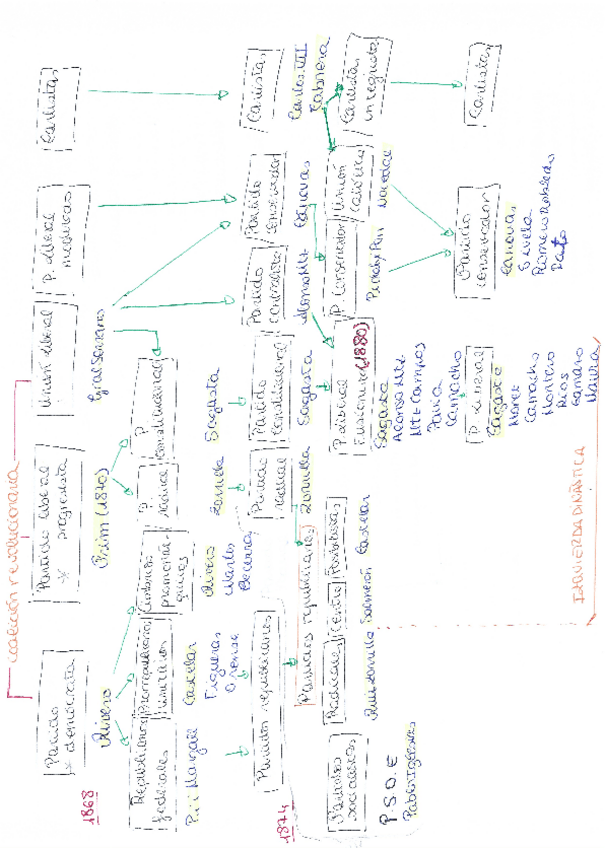 coalición revolucionaria
1868
Partido
* demócrata
Partido liberal
* progresista
Unión liberal
P. liberal
moderado
Carlistas
Rivero
Prim (1870)
Gral Serrano
Republicanos
federales
Cimbrios
P.
radical
P
Constitucional
Pi i Margall
Castelar
Figueras
Orense
Rivero
Martos
Becerra
Zorrilla
Sagasta
1874
Partidos republicanos
Partido
radical
Partido
Constitucional
Partido
centralista
Partido
conservador
Carlistas
Zorrilla
Sagasta
Alonso Mtz
Cánovas
Carlos VII
Cabrera
Partidos republicanos
Partidos
socialistas
Radicales
Centro
Posibilistas
P. liberal
Fusionista (1880)
P. Conservador
Unión
Católica
Carlistas
P.S.O.E
Pablo Iglesias
Ruiz Zorrilla
Salmerón
Castelar
Sagasta
Alonso Mtz
Mtz Campos
Pavía
Camacho
Pidal y Mon
Nocedal
P. liberal
Partido
conservador
Carlistas
Sagasta
Moret
Camacho
Montero
Ríos
Gamazo
Maura
Cánovas
Silvela
Romero Robledo
Dato
IZQUIERDA DINÁSTICA